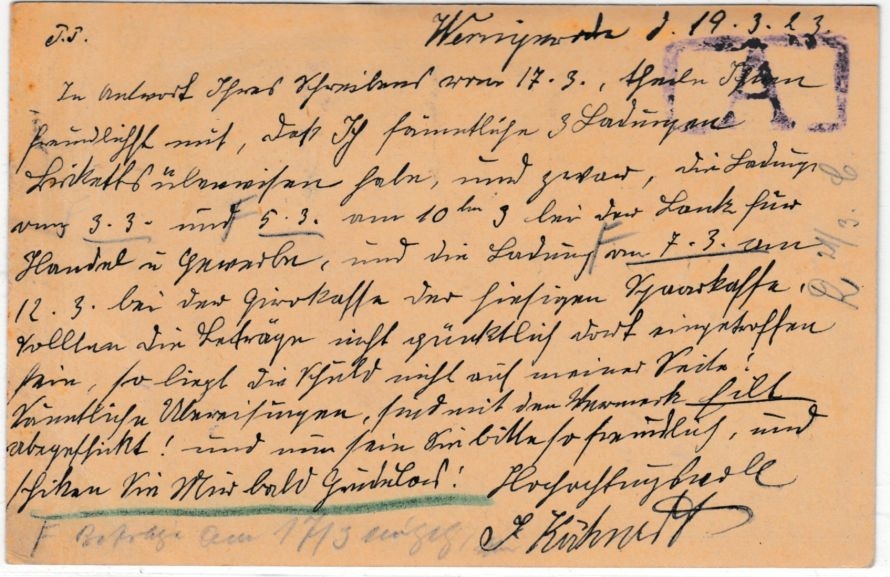 P.P.
Wernigerode d. 19.3.23.
A
In Antwort Ihres Schreibens vom 17.3., theile Ihnen
freundlichst mit, daß Ich sämmtliche 3 Ladungen
Briketts überwiesen habe, und zwar, die Ladung
vom 3.3. und 5.3. am 10ten 3 bei der Bank für
Handel u Gewerbe, und die Ladung vom 7.3. am
12.3. bei der Girokasse der hiesigen Spaarkasse.
Sollten die Beträge nicht pünktlich dort eingetroffen
sein, so liegt die Schuld nicht auf meiner Seite!
Sämmtliche Überweisungen, sind mit dem Vermerk Eilt
abgeschickt! und nun sein Sie bitte so freundlich, und
schiken Sie Mir bald
Hochachtungsvoll
F Beträge am 17/3